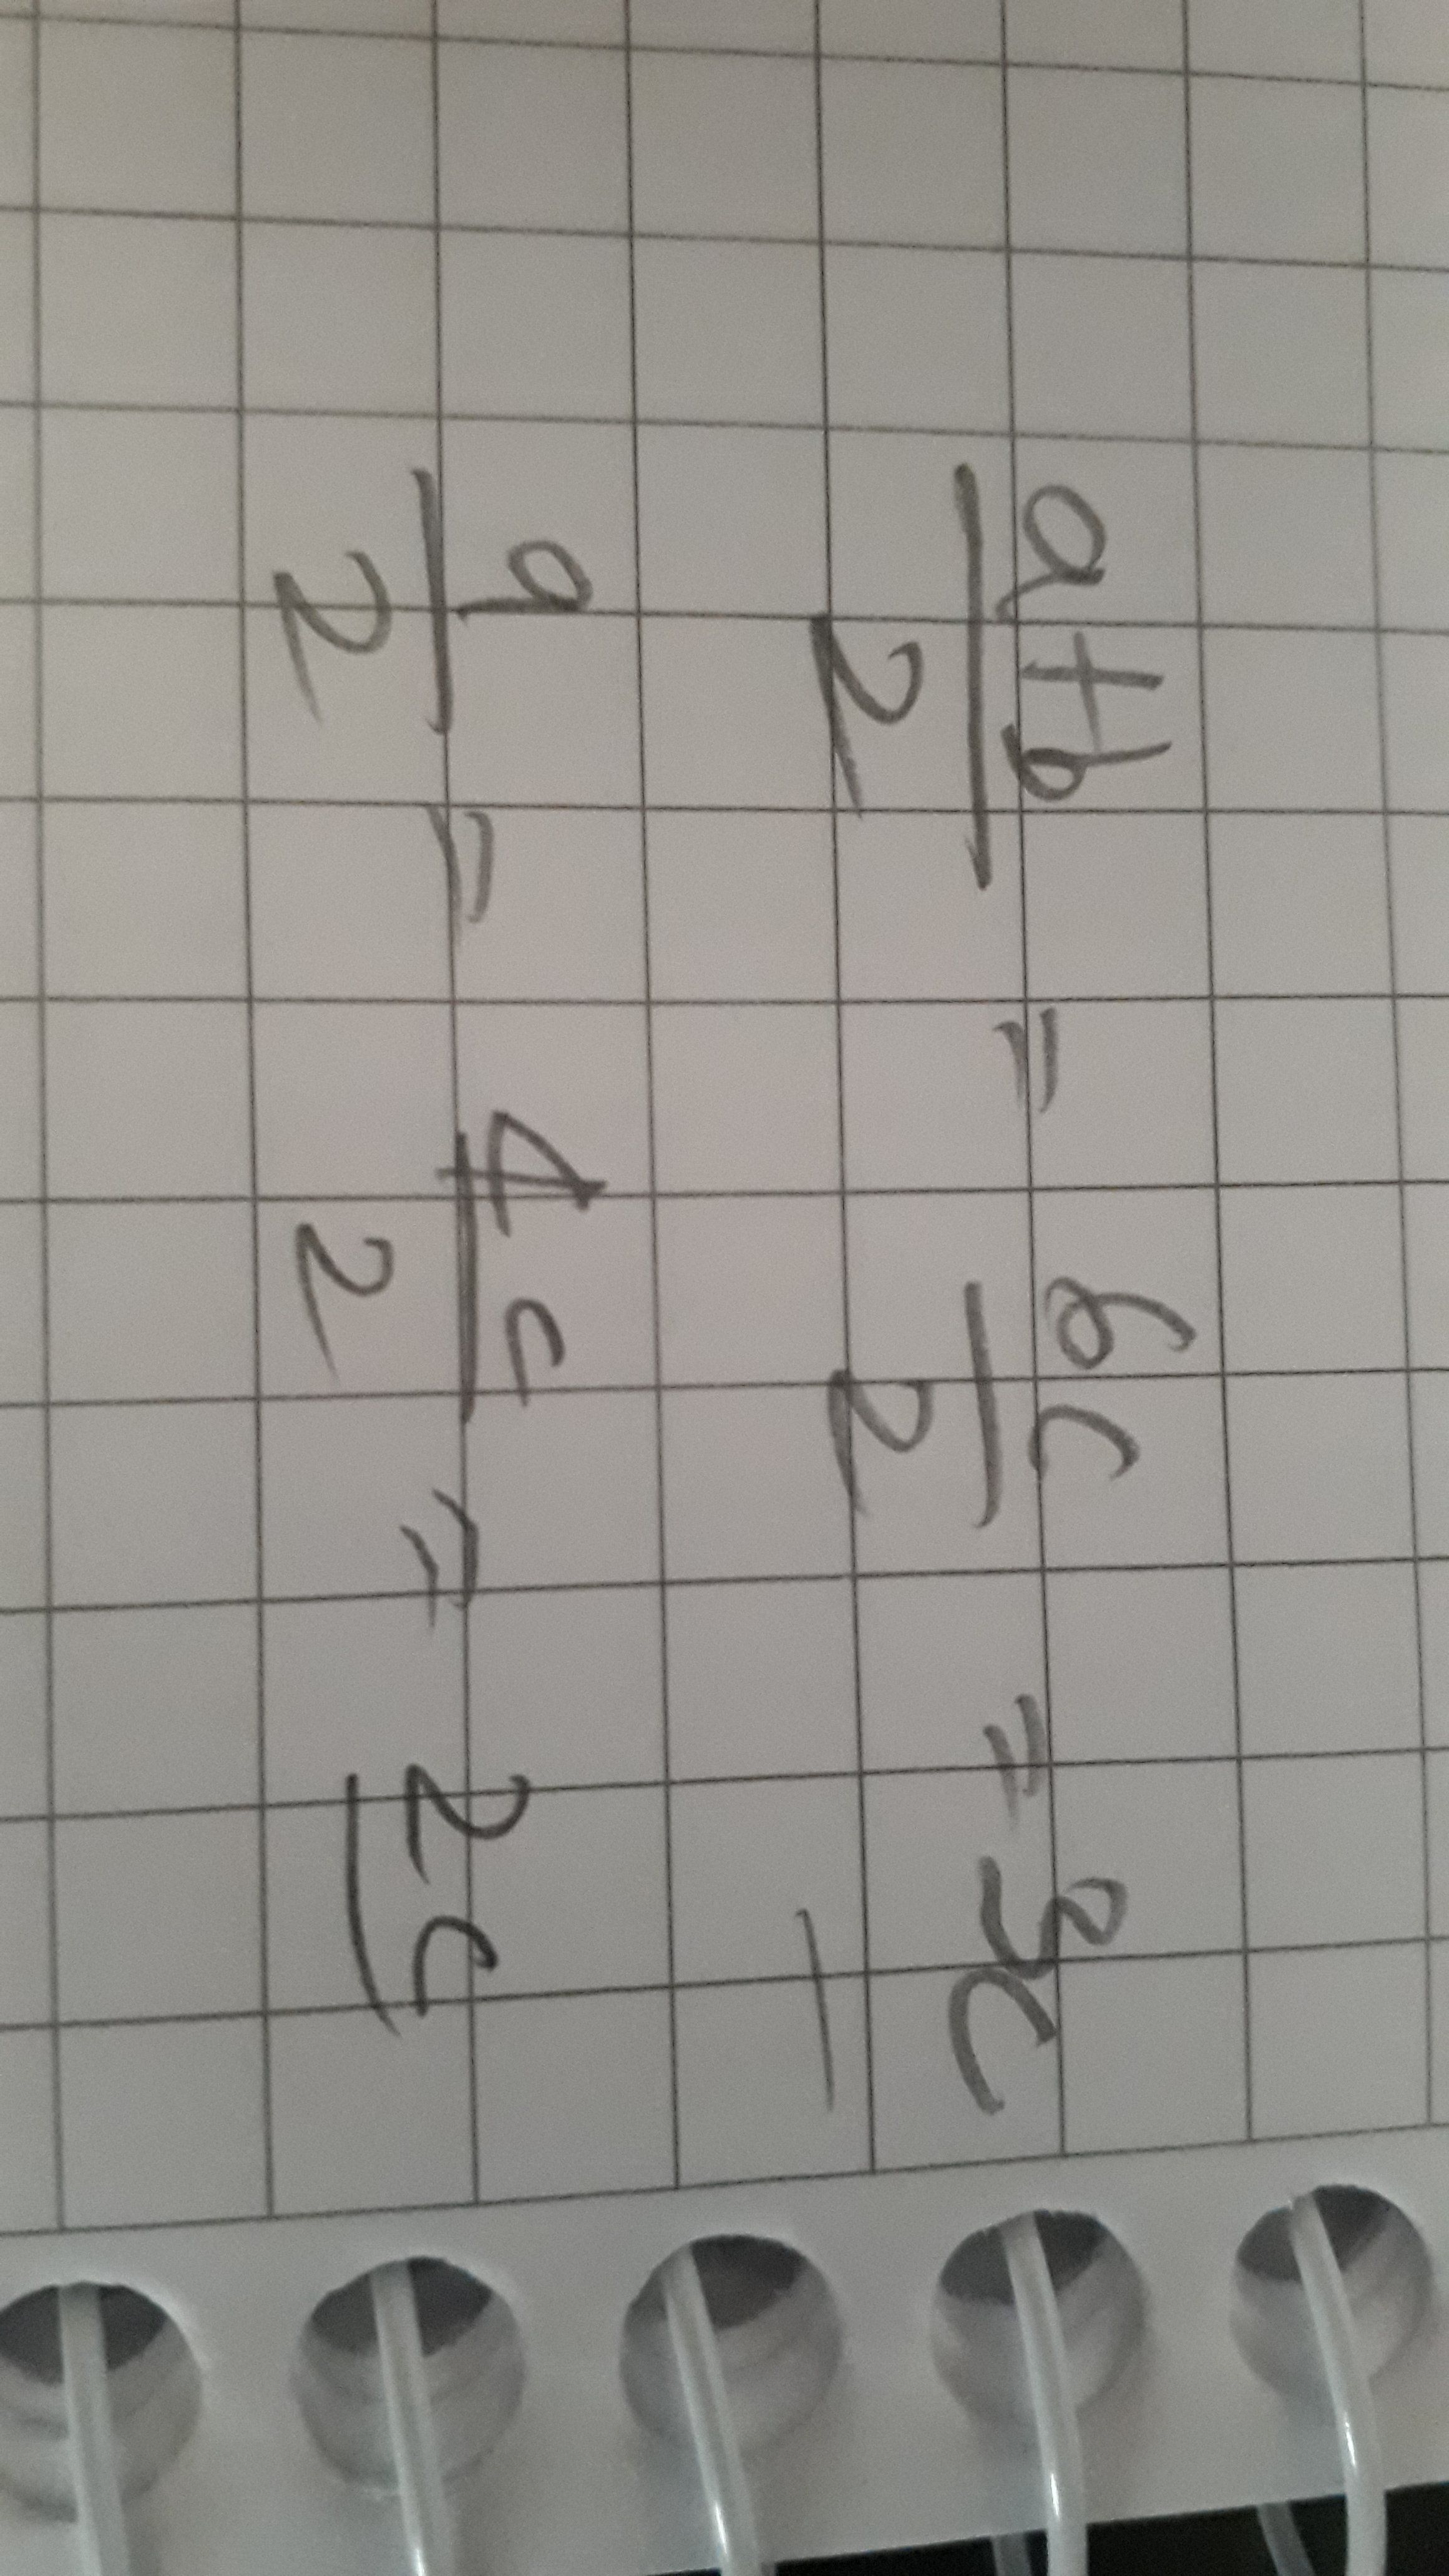 a+b/2 = 6c/2 = 3c
a/2 = 4c/2 = 2c